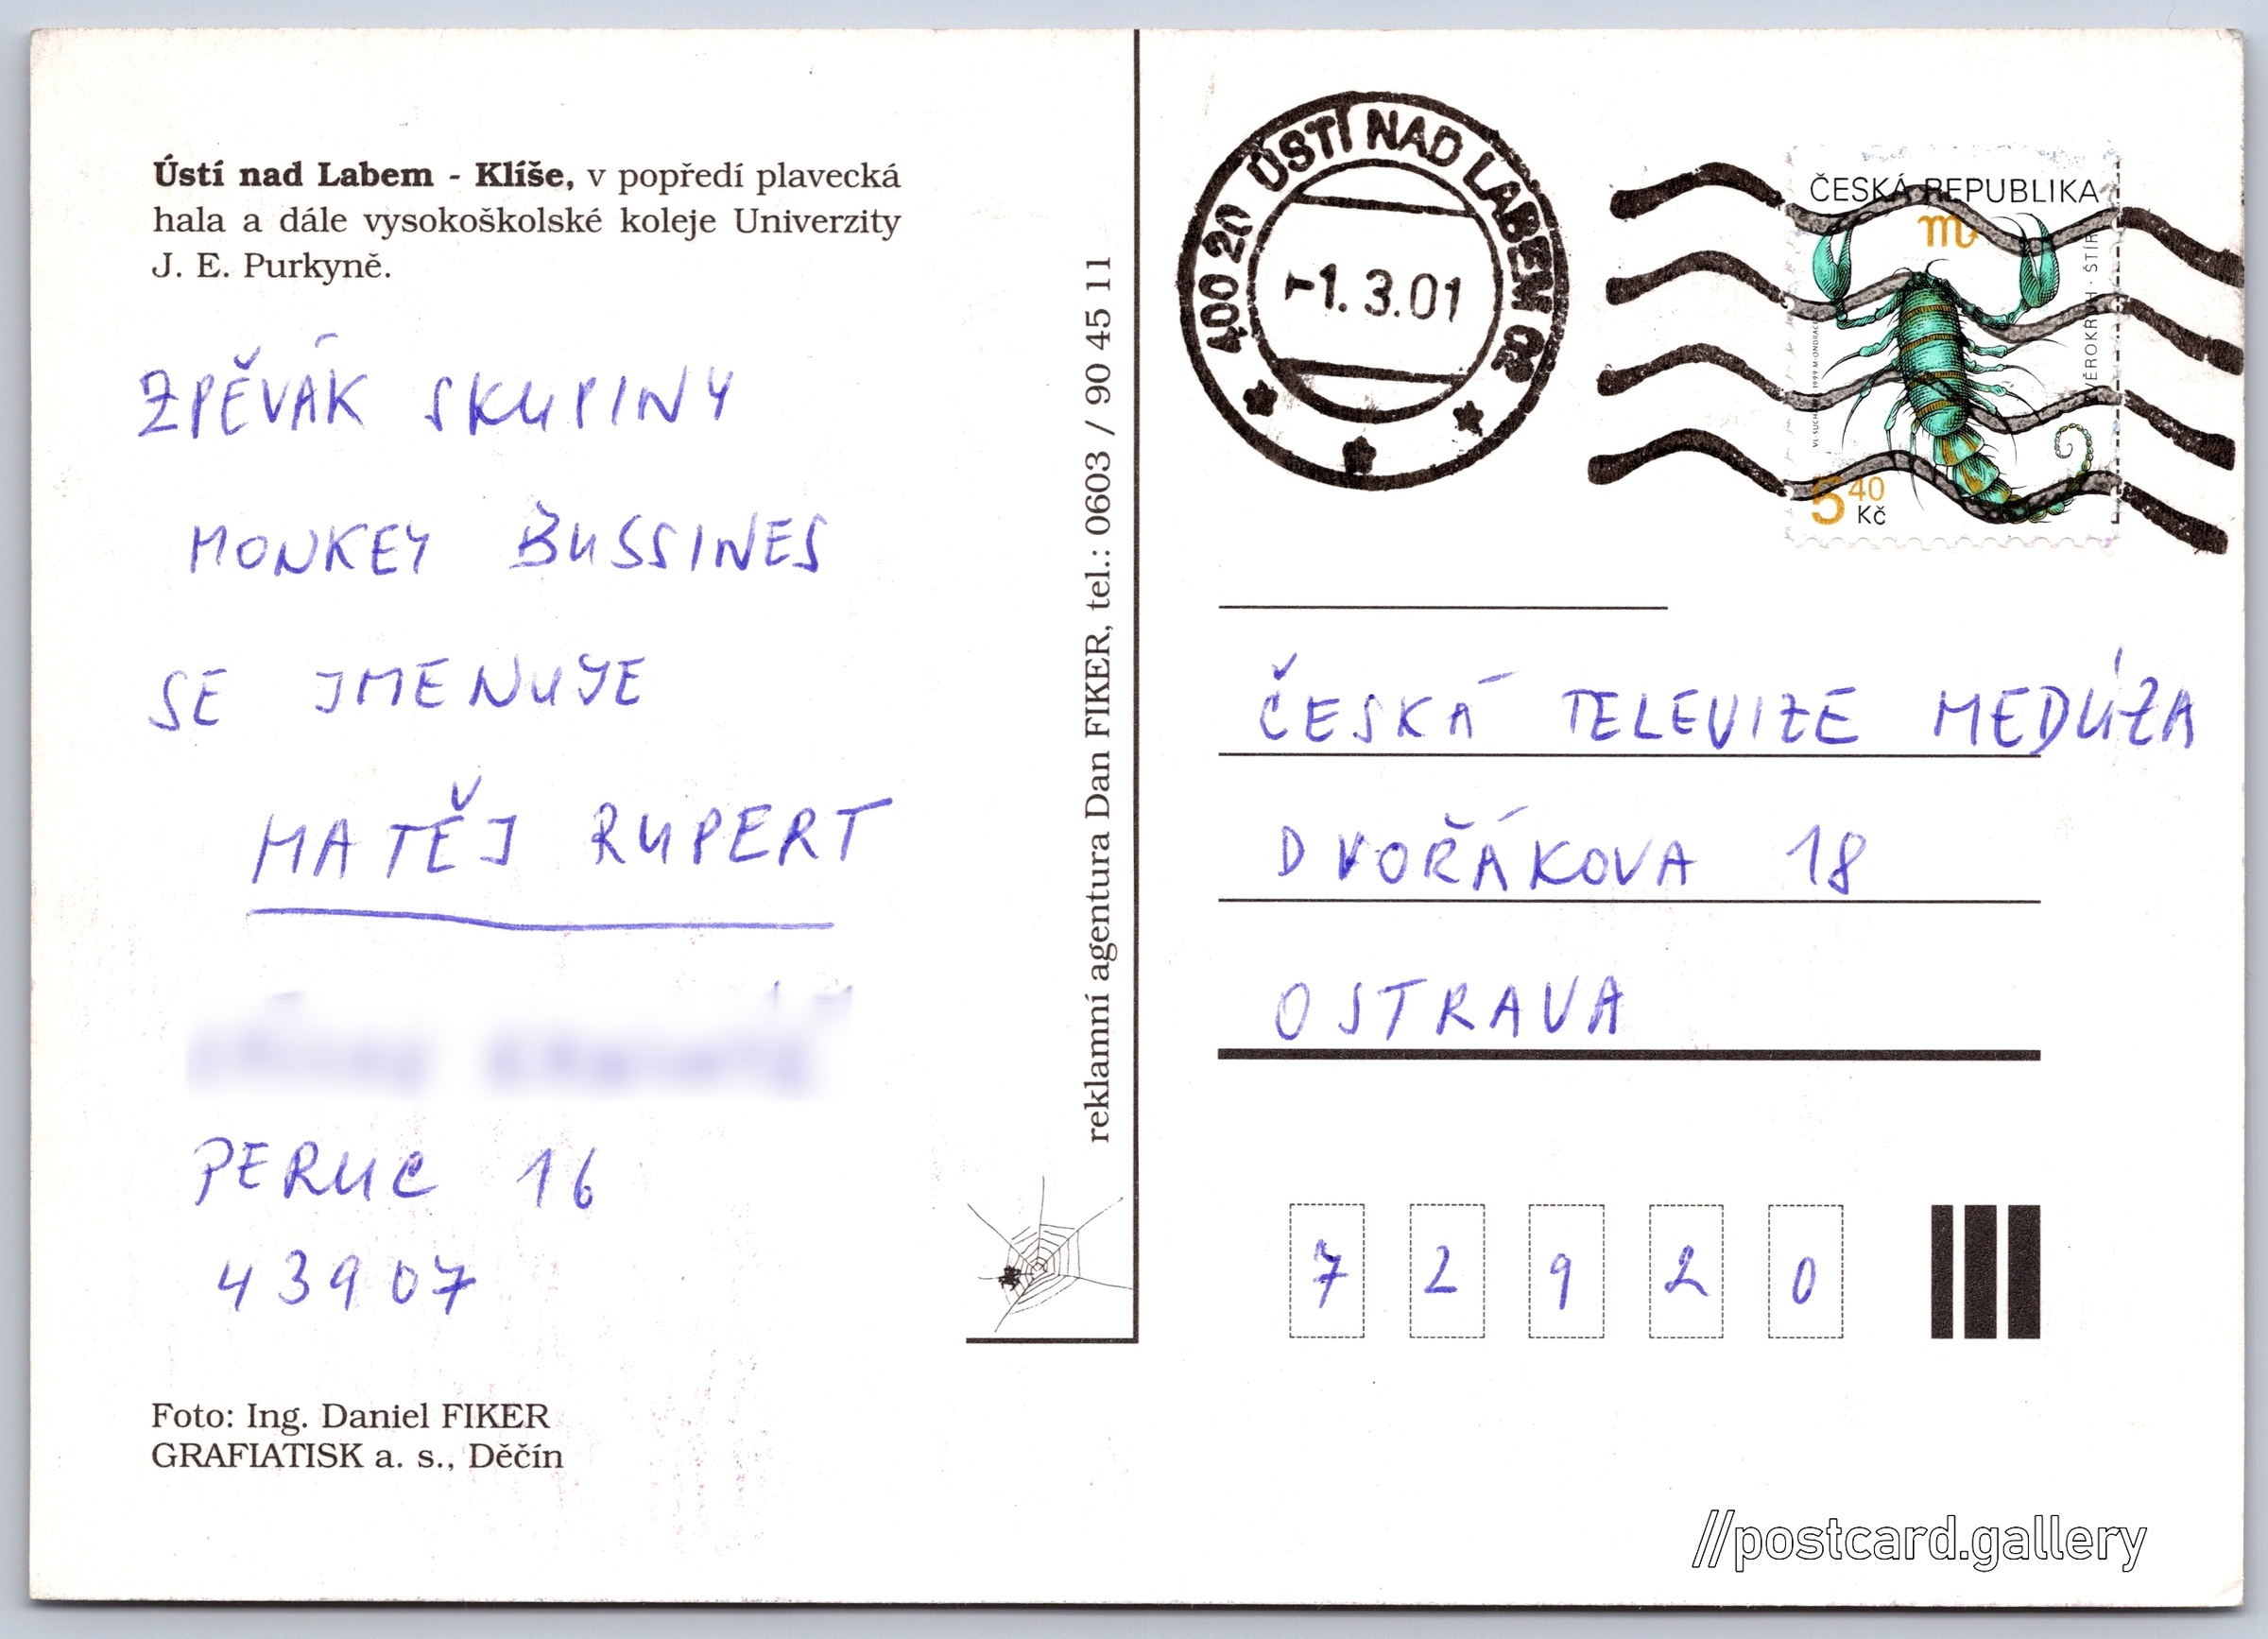 Ústí nad Labem - Klíše, v popředí plavecká
hala a dále vysokoškolské koleje Univerzity
J. E. Purkyně.
ZPĚVÁK SKUPINY
MONKEY BUSSINES
SE JMENUJE
MATĚJ RUPERT
PERUC 16
43907
Foto: Ing. Daniel FIKER
GRAFIATISK a. s., Děčín
reklamní agentura Dan FIKER, tel.: 0603 / 90 45 11
400 20 ÚSTÍ NAD LABEM 02
-1.3.01
ČESKÁ REPUBLIKA
5 40
Kč
ČESKÁ TELEVIZE MEDÚZA
DVOŘÁKOVA 18
OSTRAVA
7 2 9 2 0
//postcard.gallery